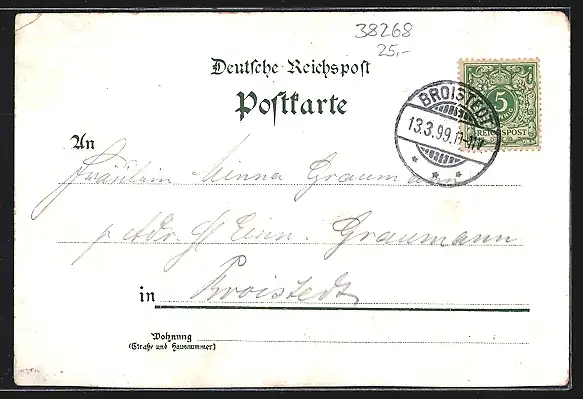 38268
25,-
Deutsche Reichspost
Postkarte
BROISTEDT
13.3.99.11-12V
5
REICHSPOST
An
Fräulein Minna Graumann
p. Adr. H Graumann
in Broistedt
Wohnung
(Straße und Hausnummer)